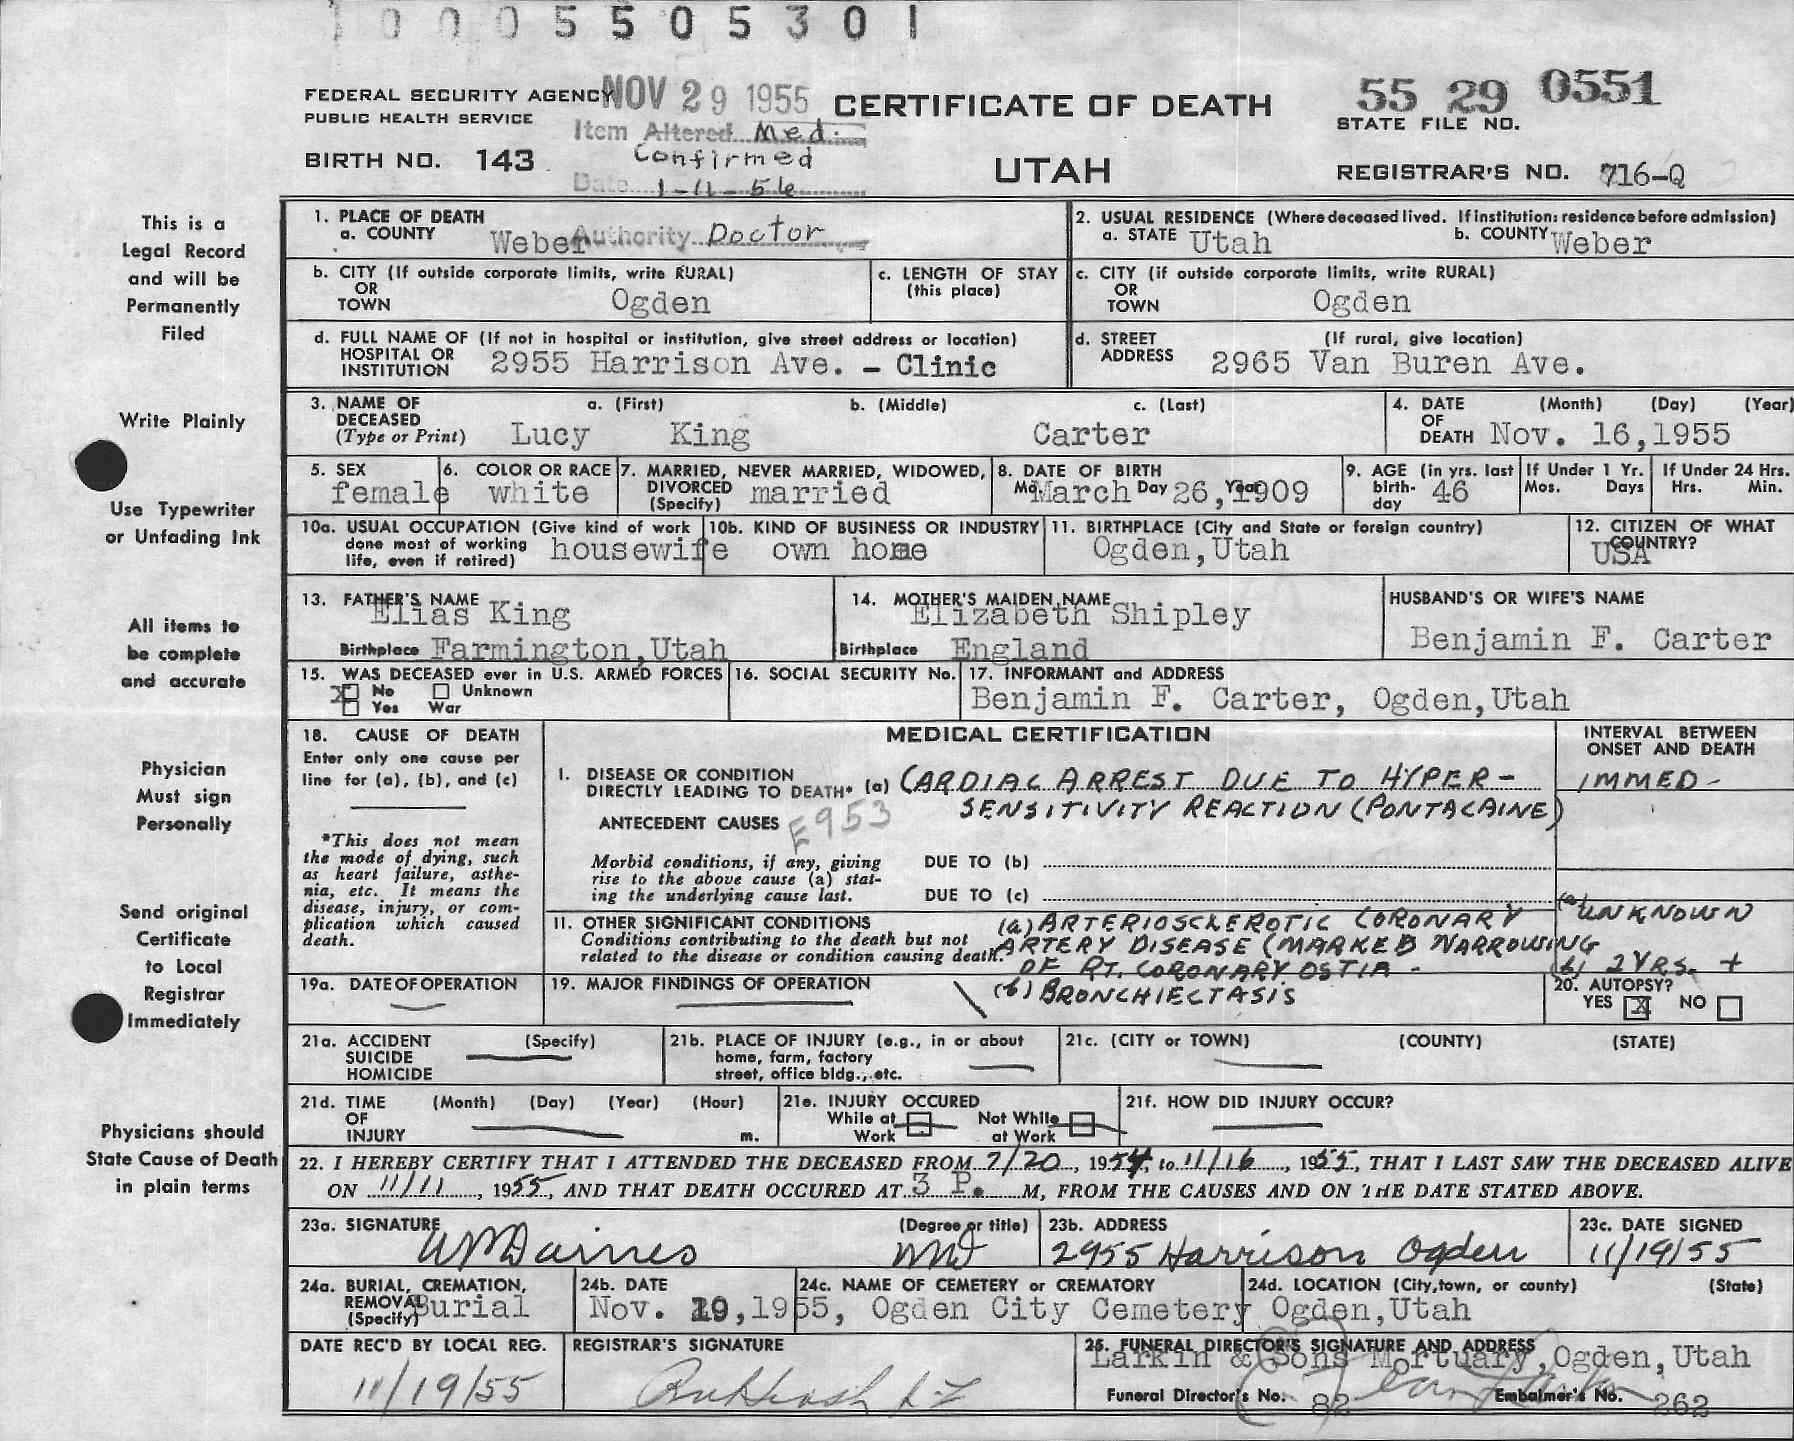 1 0 0 0 5 5 0 5 3 0 1
FEDERAL SECURITY AGENCY
PUBLIC HEALTH SERVICE
NOV 29 1955
CERTIFICATE OF DEATH
55 29 0551
STATE FILE NO.
Item Altered Med.
Confirmed
BIRTH NO. 143
Date 1-11-56
UTAH
REGISTRAR'S NO. 716-Q
This is a
Legal Record
and will be
Permanently
Filed
Write Plainly
Use Typewriter
or Unfading Ink
All items to
be complete
and accurate
Physician
Must sign
Personally
Send original
Certificate
to Local
Registrar
Immediately
Physicians should
State Cause of Death
in plain terms
1. PLACE OF DEATH
a. COUNTY Weber
Authority Doctor
2. USUAL RESIDENCE (Where deceased lived. If institution: residence before admission)
a. STATE Utah b. COUNTY Weber
b. CITY (If outside corporate limits, write RURAL)
OR
TOWN Ogden
c. LENGTH OF STAY
(this place)
c. CITY (if outside corporate limits, write RURAL)
OR
TOWN Ogden
d. FULL NAME OF (If not in hospital or institution, give street address or location)
HOSPITAL OR
INSTITUTION 2955 Harrison Ave. - Clinic
d. STREET (If rural, give location)
ADDRESS 2965 Van Buren Ave.
3. NAME OF a. (First) b. (Middle) c. (Last)
DECEASED
(Type or Print) Lucy King Carter
4. DATE (Month) (Day) (Year)
OF
DEATH Nov. 16,1955
5. SEX
female
6. COLOR OR RACE
white
7. MARRIED, NEVER MARRIED, WIDOWED,
DIVORCED married
(Specify)
8. DATE OF BIRTH
Mo. March Day 26, Year 1909
9. AGE (in yrs. last
birth- 46
day
If Under 1 Yr.
Mos. Days
If Under 24 Hrs.
Hrs. Min.
10a. USUAL OCCUPATION (Give kind of work
done most of working
life, even if retired) housewife
10b. KIND OF BUSINESS OR INDUSTRY
own home
11. BIRTHPLACE (City and State or foreign country)
Ogden,Utah
12. CITIZEN OF WHAT
COUNTRY?
USA
13. FATHER'S NAME
Elias King
Birthplace Farmington,Utah
14. MOTHER'S MAIDEN NAME
Elizabeth Shipley
Birthplace England
HUSBAND'S OR WIFE'S NAME
Benjamin F. Carter
15. WAS DECEASED ever in U.S. ARMED FORCES
X No Unknown
Yes War
16. SOCIAL SECURITY No.
17. INFORMANT and ADDRESS
Benjamin F. Carter, Ogden,Utah
18. CAUSE OF DEATH
Enter only one cause per
line for (a), (b), and (c)
*This does not mean
the mode of dying, such
as heart failure, asthe-
nia, etc. It means the
disease, injury, or com-
plication which caused
death.
MEDICAL CERTIFICATION
INTERVAL BETWEEN
ONSET AND DEATH
I. DISEASE OR CONDITION
DIRECTLY LEADING TO DEATH* (a) CARDIAC ARREST DUE TO HYPER-
SENSITIVITY REACTION (PONTACAINE)
IMMED-
ANTECEDENT CAUSES E953
Morbid conditions, if any, giving
rise to the above cause (a) stat-
ing the underlying cause last.
DUE TO (b)
DUE TO (c)
11. OTHER SIGNIFICANT CONDITIONS
Conditions contributing to the death but not
related to the disease or condition causing death.
(a) ARTERIOSCLEROTIC CORONARY
ARTERY DISEASE (MARKED NARROWING
OF RT. CORONARY OSTIA -
(b) BRONCHIECTASIS
(a) UNKNOWN
(b) 2 YRS. +
19a. DATE OF OPERATION
19. MAJOR FINDINGS OF OPERATION
20. AUTOPSY?
YES X NO
21a. ACCIDENT (Specify)
SUICIDE
HOMICIDE
21b. PLACE OF INJURY (e.g., in or about
home, farm, factory
street, office bldg., etc.
21c. (CITY or TOWN) (COUNTY) (STATE)
21d. TIME (Month) (Day) (Year) (Hour)
OF
INJURY m.
21e. INJURY OCCURED
While at Not While
Work at Work
21f. HOW DID INJURY OCCUR?
22. I HEREBY CERTIFY THAT I ATTENDED THE DECEASED FROM 7/20, 1954, to 11/16, 1955, THAT I LAST SAW THE DECEASED ALIVE
ON 11/11, 1955, AND THAT DEATH OCCURED AT 3 P. M, FROM THE CAUSES AND ON THE DATE STATED ABOVE.
23a. SIGNATURE (Degree or title)
WM Daines MD
23b. ADDRESS
2955 Harrison Ogden
23c. DATE SIGNED
11/19/55
24a. BURIAL, CREMATION,
REMOVAL
(Specify) Burial
24b. DATE
Nov. 19,1955,
24c. NAME OF CEMETERY or CREMATORY
Ogden City Cemetery
24d. LOCATION (City,town, or county) (State)
Ogden,Utah
DATE REC'D BY LOCAL REG.
11/19/55
REGISTRAR'S SIGNATURE
25. FUNERAL DIRECTOR'S SIGNATURE AND ADDRESS
Larkin & Sons Mortuary,Ogden,Utah
Funeral Director's No. 82 Embalmer's No. 262